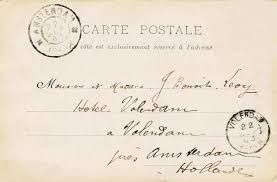 AMSTERDAM
CARTE POSTALE
Ce côté est exclusivement réservé à l'adresse
Monsieur et Madame J. Benoit-Lévy
Hotel Volendam
VOLENDAM
22
à Volendam
près Amsterdam
Hollande